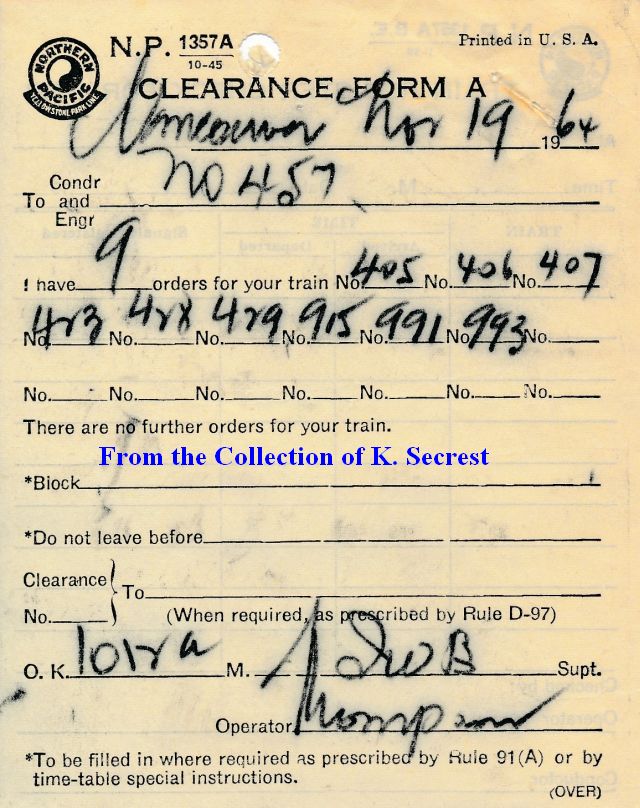 N.P. 1357A
10-45
Printed in U. S. A.
NORTHERN PACIFIC
YELLOWSTONE PARK LINE
CLEARANCE FORM A
Vancouver Nov 19 1964
To Condr and Engr No 457
I have 9 orders for your train No. 405 No. 406 No. 407
No. 423 No. 428 No. 429 No. 915 No. 991 No. 993 No.
No. No. No. No. No. No. No.
There are no further orders for your train.
From the Collection of K. Secrest
*Block
*Do not leave before
Clearance No. } To
(When required, as prescribed by Rule D-97)
O. K. 1012 a M. Supt.
Operator Thompson
*To be filled in where required as prescribed by Rule 91(A) or by
time-table special instructions.
(OVER)